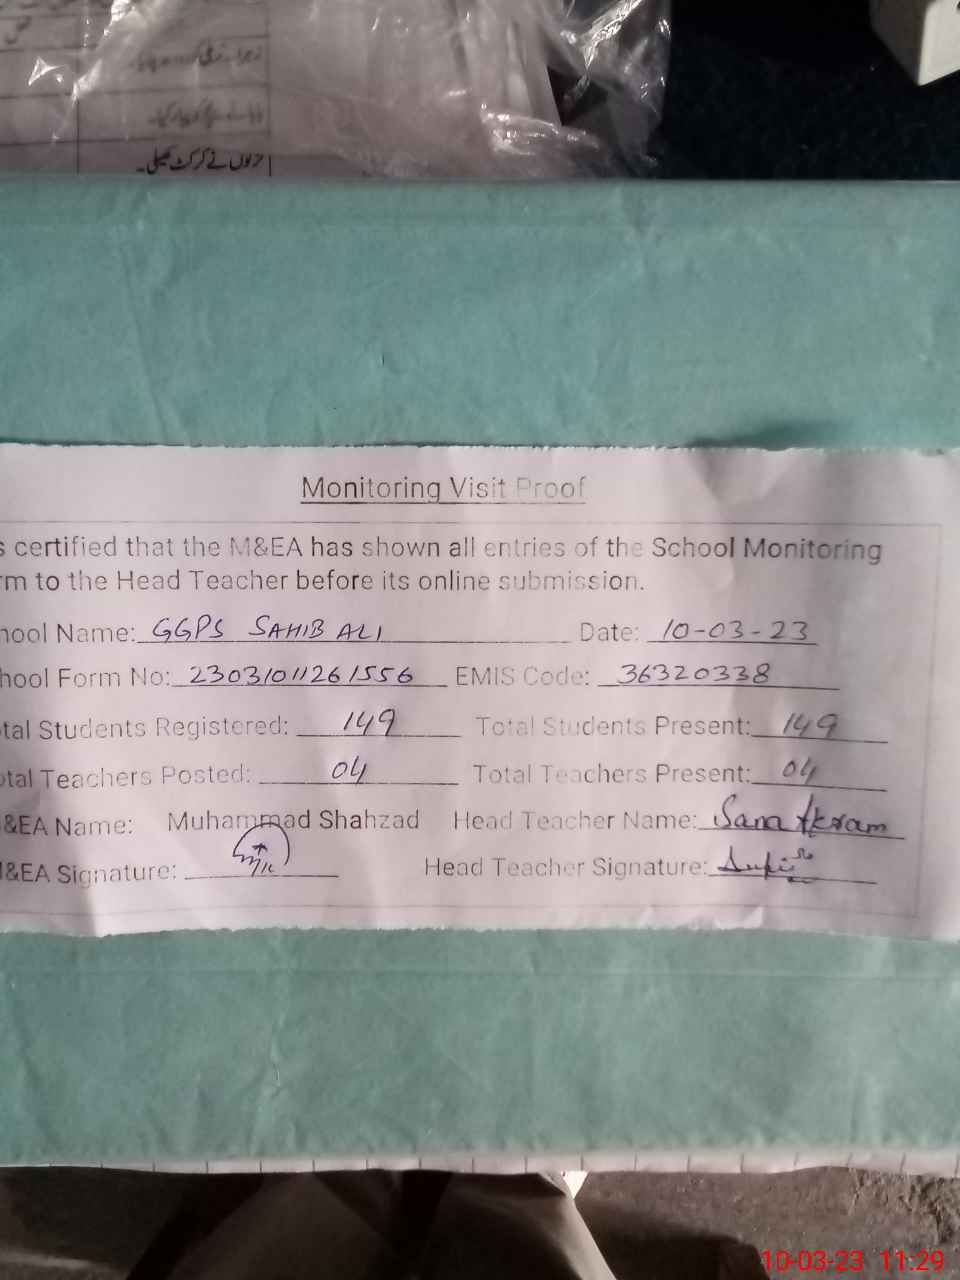 حزلوں نے کرکٹ کھیلی۔
Monitoring Visit Proof
s certified that the M&EA has shown all entries of the School Monitoring
rm to the Head Teacher before its online submission.
hool Name: GGPS SAHIB ALI Date: 10-03-23
hool Form No: 2303101126 1556 EMIS Code: 36320338
tal Students Registered: 149 Total Students Present: 149
otal Teachers Posted: 04 Total Teachers Present: 04
&EA Name: Muhammad Shahzad Head Teacher Name: Sana Akram
&EA Signature: Head Teacher Signature:
10-03-23 11:29